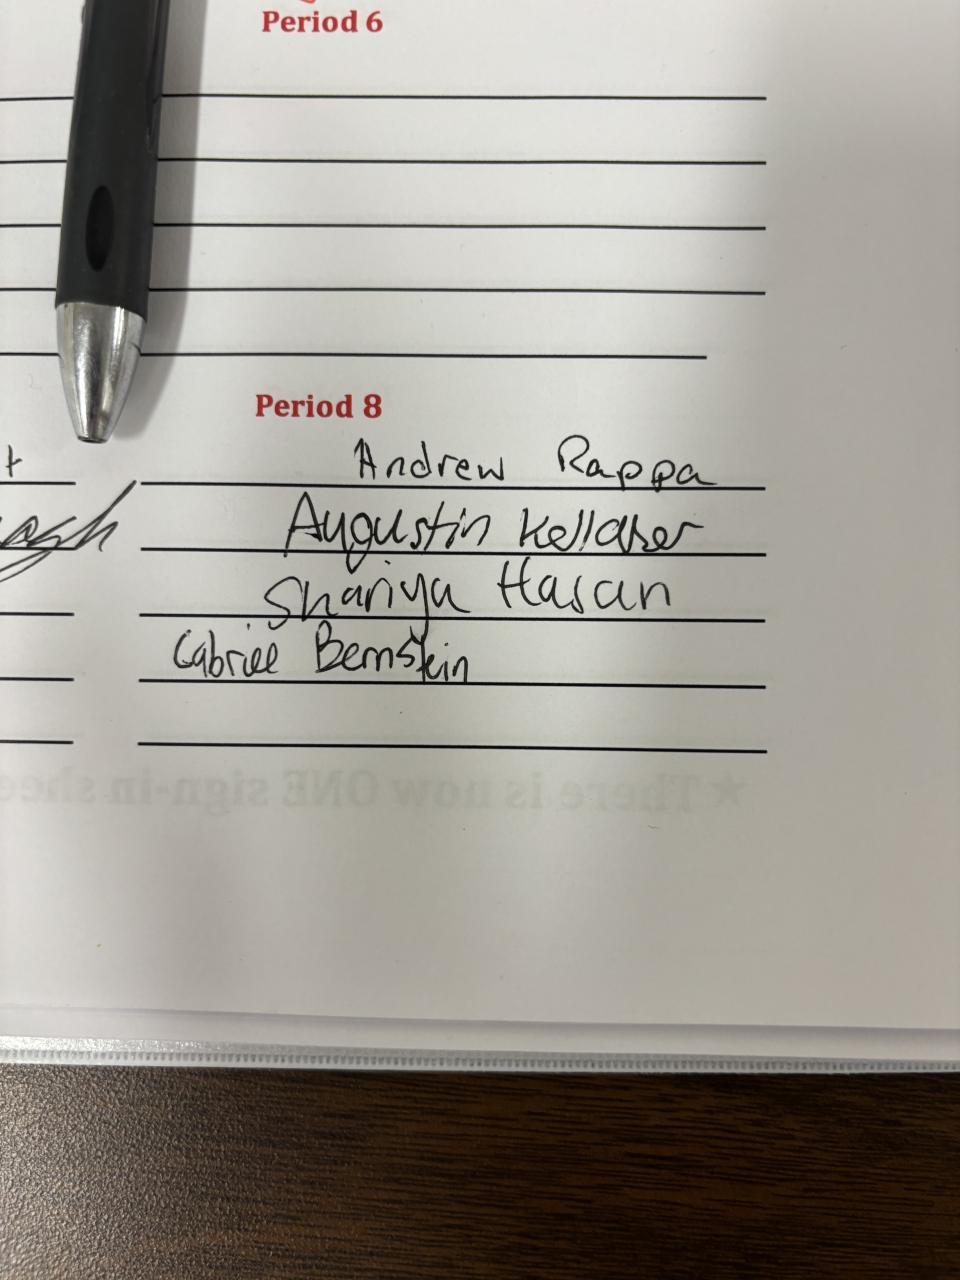 Period 6
Period 8
Andrew Rappa
Augustin
Shariya Hasan
Gabriel Bernstein
★There is now ONE sign-in